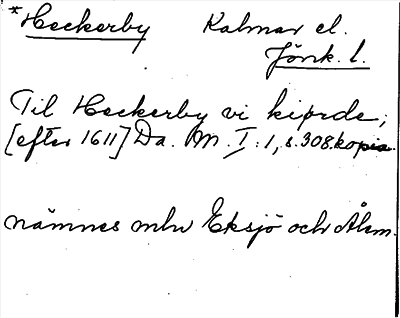 *Heckerby Kalmar el.
Jönk. l.
Til Heckerby vi kiprde;
[efter 1611] Da. M. I:1, s. 308. kopia.
nämnes mlw Eksjö och Ålem.